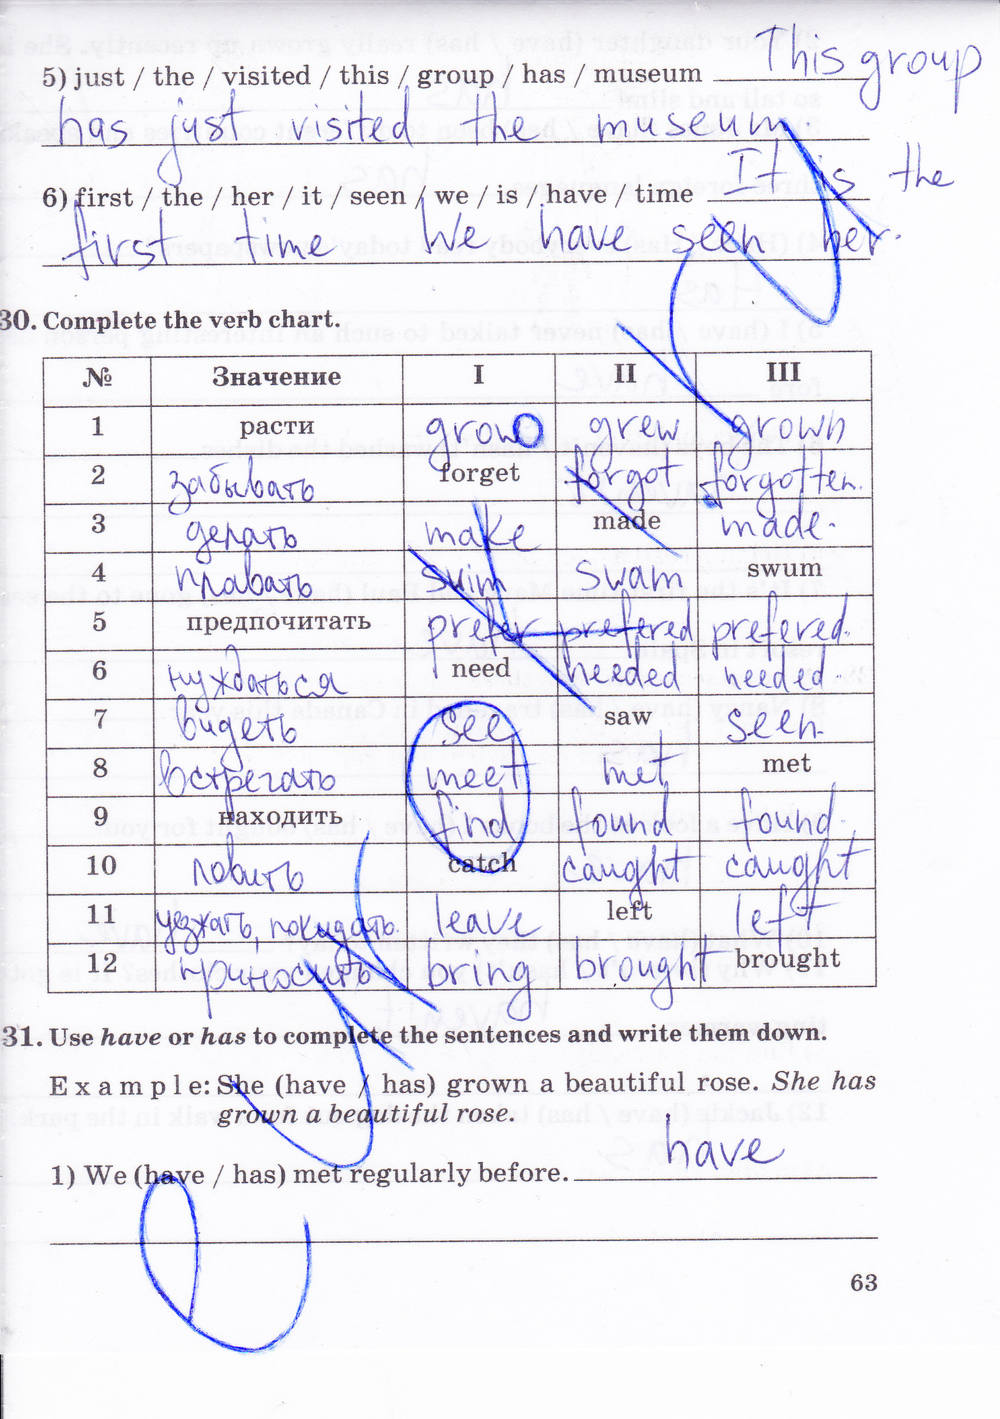 5) just / the / visited / this / group / has / museum This group
has just visited the museum.
6) first / the / her / it / seen / we / is / have / time It is the
first time We have seen her.
30. Complete the verb chart.
№ Значение I II III
1 расти grow grew grown
2 забывать forget forgot forgotten.
3 делать make made made.
4 плавать swim swam swum
5 предпочитать prefer prefered prefered.
6 нуждаться need needed needed.
7 видеть see saw seen.
8 встречать meet met met
9 находить find found found
10 ловить catch caught caught
11 уезжать, покидать. leave left left
12 приносить bring brought brought
31. Use have or has to complete the sentences and write them down.
Example: She (have / has) grown a beautiful rose. She has
grown a beautiful rose.
1) We (have / has) met regularly before. have
63